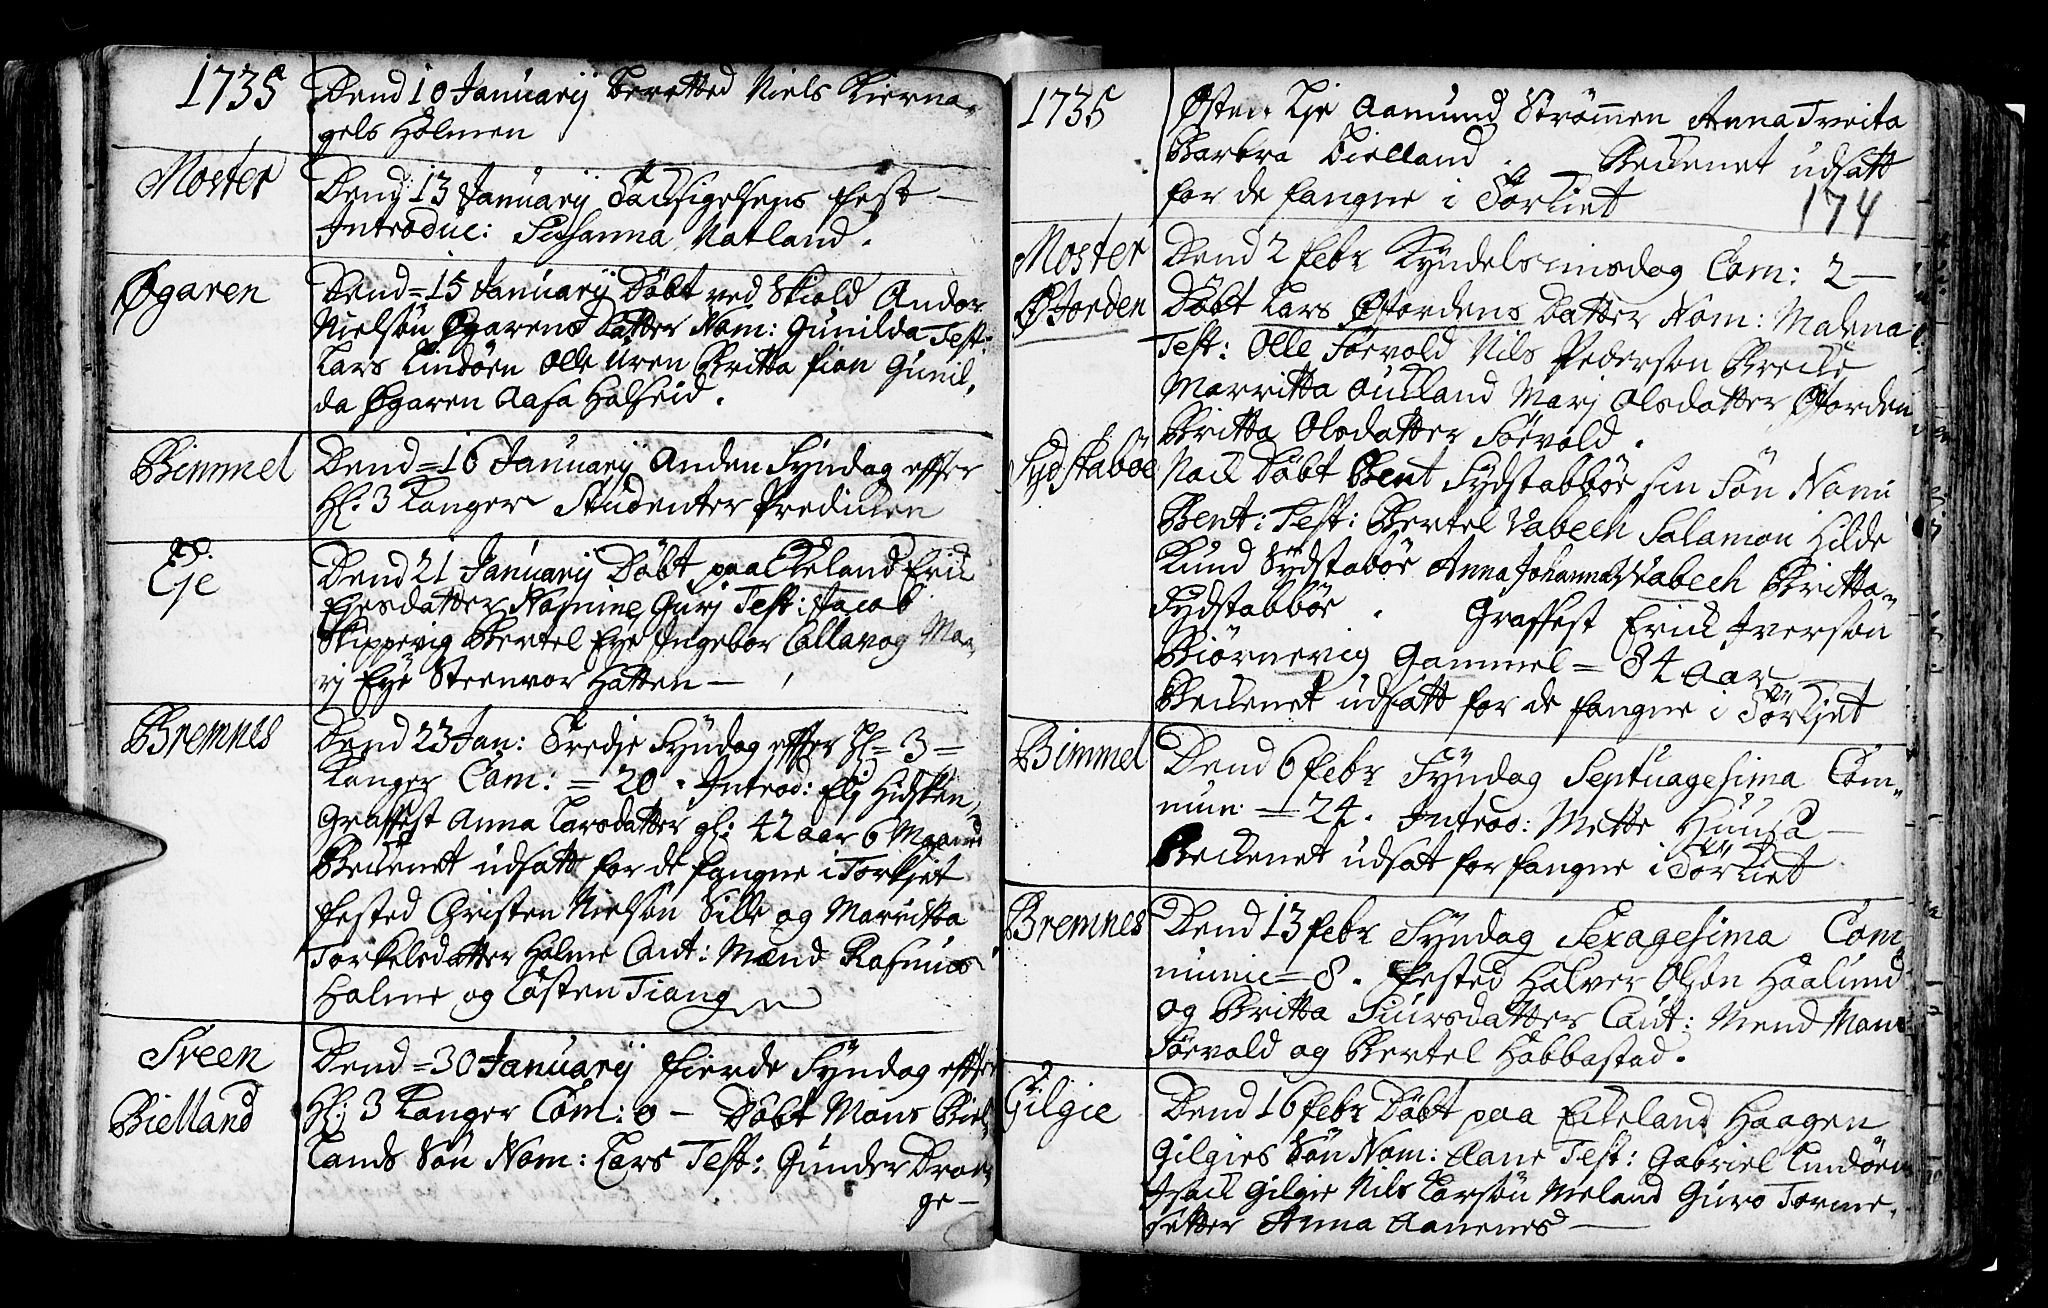 1735
Dend 10 Januarij beretted Niels Kierna-
gels Holmen
Moster
Dend 13 Januarij Tachsigelsens fest —
Introduc: Susanna Natland.
Øgaren
Dend = 15 Januarij Döbt ved Skiold Andor
Nielsön Øgarens Datter Nom: Gunilda Test:
Lars Lindöen Olle Uren Britta fion Gunil,
da Øgaren Aasa Halseid.
Bimmel
Dend = 16 Januarij Anden Syndag effter
Hl: 3 Konger Studenter Predicken
Eje
Dend 21 Januarij Döbt paa Ekeland Erick
Ejesdatter Nomine Gurj Test: Jacob
Skippevig Bertel Eye Ingebor Callavog Ma-
rj Eye Steenvor Hatten —
Bremnes
Dend 23 Jan: Tredje Syndag effter Hl= 3 =
Konger Com: = 20 . Introd: Elj Hidsken,
Graffest Anna Larsdatter gl: 42 aar 6 Maaned
Beckenet udsatt for de fangne i Torkjet
fested Christen Nielsön Sille og Marritta
Torkelsdatter Holme Caut: Mænd Rasmus
Holme og Tosten Tiong
Sveen
Bielland
Dend = 30 Januarij fierde Syndag effter
Hl: 3 Konger Com: 0 — Döbt Mons Biel,
lands Sön Nom: Lars Test: Gunder Dron,
ge —
1735
Østen Eje Aamund Strömen Anna Tveita
Barbra Bielland . Beckenet udsatt
for de fangne i Törkiet
174
Moster
Øfjorden
Dend 2 febr Kyndelsmisdag Com: 2 —
Döbt Lars Øfjordens Datter Nom: Malena
Test: Olle Söevold Nils Pederson Brecke
Marritta Auckland Marj Olsdatter Øfjorden
Britta Olsdatter Söevold.
Sydstaböe
Nock Döbt Bent Sydstabböe sin Sön Nomi
Bent: Test: Bertel Vabech Salamon Hilde
Knud Sydstaböe Anna Johanna Vabech Britta
Sydstabböe . Graffest Erick Iverson
Biörnevig Gammel = 84 aar —
Beckenet udsatt for de fangne i Törkjet
Bimmel
Dend 6 febr Syndag Septuagesima Com-
mun: — 24. Introd: Mette Huusa —
Beckenet udsatt for fangne i Törkiet
Bremnes
Dend 13 febr Syndag Sexagesima Com
munic = 8. fested Halver Olsön Haalund
og Britta Siursdatter Caut: Mend Mons
Söevold og Bertel Habbastad.
Gilgie
Dend 16 febr Döbt paa Eckeland Haagen
Gilgies Sön Nom: Aane Test: Gabriel Lindöen
Isack Gilgie Nils Larsön Nieland Guro Torme,
setter Anna Aanenes —